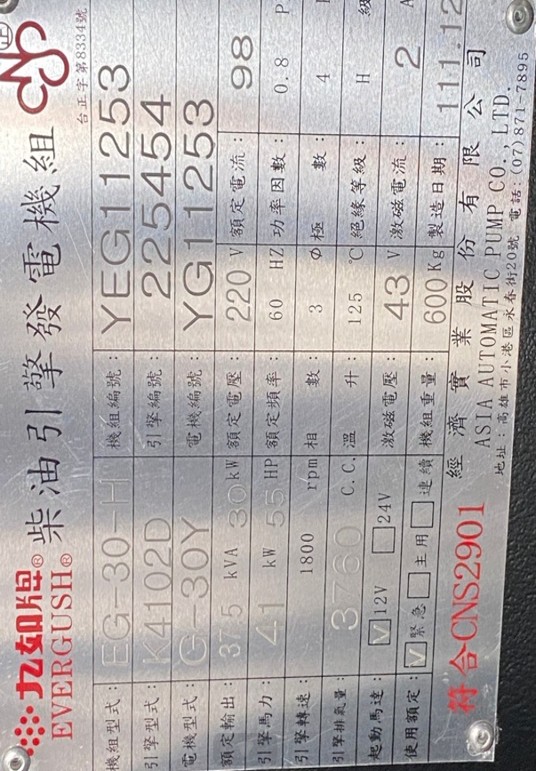 九如牌® 柴油引擎發電機組
EVERGUSH®
CNS
正
台正字第8334號
機組型式: EG-30-H 機組編號: YEG11253
引擎型式: K4102D 引擎編號: 225454
電機型式: G-30Y 電機編號: YG11253
額定輸出: 37.5 kVA 30 kW 額定電壓: 220 V 額定電流: 98
引擎馬力: 41 kW 55 HP 額定頻率: 60 HZ 功率因數: 0.8 P
引擎轉速: 1800 rpm 相數: 3 Φ 極數: 4
引擎排氣量: 3760 C.C. 溫升: 125 ℃ 絕緣等級: H 級
起動馬達: V 12V 24V 激磁電壓: 43 V 激磁電流: 2 A
使用額定: V 緊急 主用 連續 機組重量: 600 Kg 製造日期: 111.12
符合CNS2901 經濟實業股份有限公司
ASIA AUTOMATIC PUMP CO., LTD.
地址:高雄市小港區永春街20號 電話:(07)871-7895